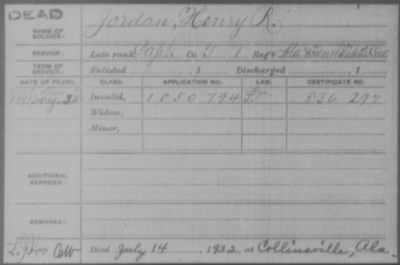 DEAD
Jordan, Henry R.
NAME OF SOLDIER:
SERVICE: Late rank Capt. Co. 1 Reg't
TERM OF SERVICE: Enlisted , 1 Discharged , 1
DATE OF FILING. CLASS. APPLICATION NO. LAW. CERTIFICATE NO.
Invalid, 1050794 836 297
Widow,
Minor,
ADDITIONAL SERVICES:
REMARKS:
Died July 14, 1932, at Collinsville, Ala.